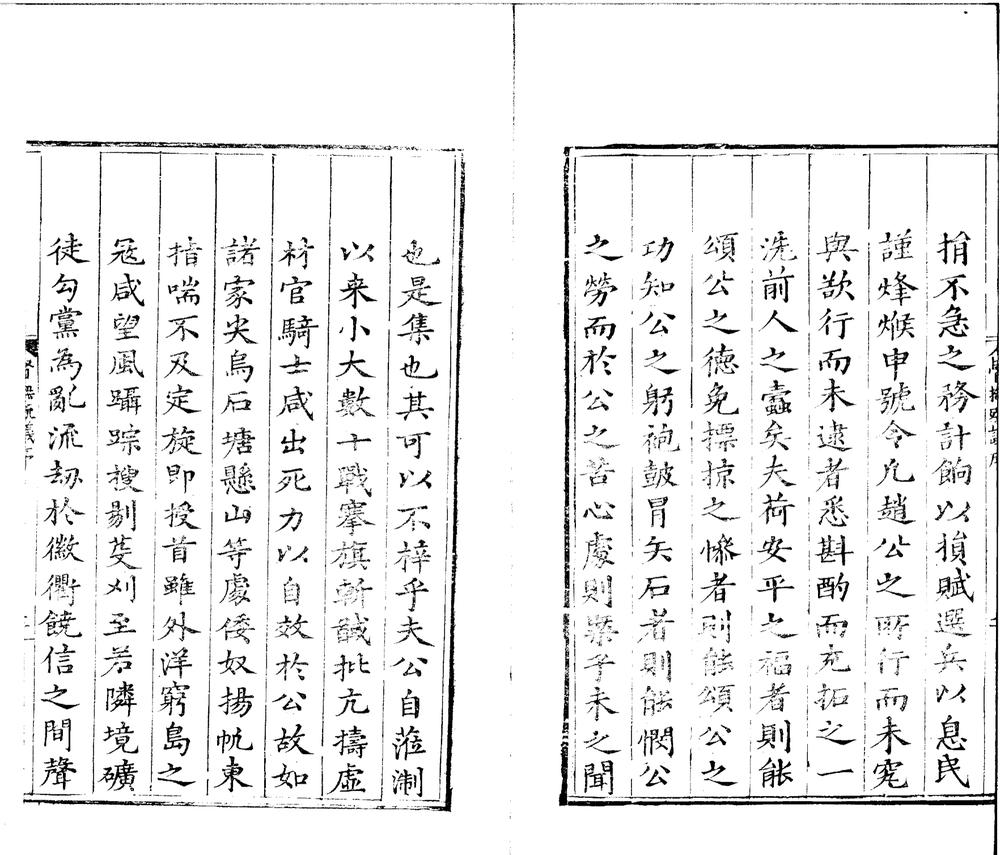 捐不急之務計餉以損賦選兵以息民
謹烽燧申號令凢趙公之所行而未究
與欲行而未逮者悉斟酌而充拓之一
洗前人之蠧矣夫荷安平之福者則能
頌公之徳免摽掠之慘者則能頌公之
功知公之躬袍皷冒矢石者則能憫公
之勞而於公之苦心處則槩乎未之聞
也是集也其可以不梓乎夫公自蒞淛
以来小大數十戰搴旗斬馘批亢擣虛
材官騎士咸出死力以自效於公故如
諸家尖烏石塘懸山等處倭奴揚帆東
指喘不及定旋即授首雖外洋窮島之
冦咸望風躡踪搜剔芟刈至若隣境礦
徒勾黨為亂流劫於徽衢饒信之間聲